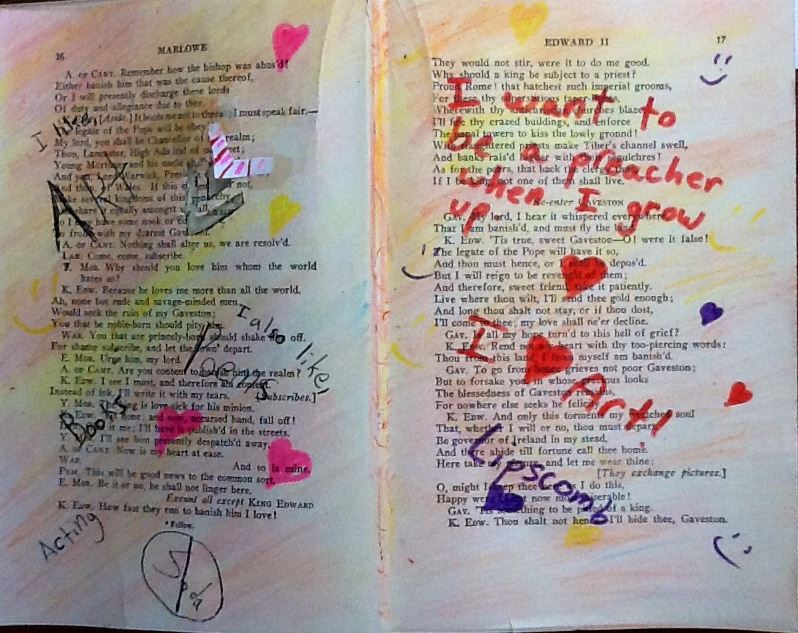 16 MARLOWE
A. OF CANT. Remember how the bishop was abus'd!
Either banish him that was the cause thereof,
Or I will presently discharge these lords
Of duty and allegiance due to thee.
[Aside.] It boots me not to threat; I must speak fair.—
The legate of the Pope will be obey'd.
My lord, you shall be Chancellor of the realm;
Thou, Lancaster, High Admiral of our fleet;
Young Mortimer and his uncle shall
And you, Lord Warwick, President
And thou, of Wales. If this content you not,
Make several kingdoms of this monarchy,
And share it equally amongst you all,
So I may have some nook or corner
To frolic with my dearest Gaveston.
A. OF CANT. Nothing shall alter us, we are resolv'd.
LAN. Come, come, subscribe.
Y. MOR. Why should you love him whom the world
hates so?
K. EDW. Because he loves me more than all the world.
Ah, none but rude and savage-minded men
Would seek the ruin of my Gaveston;
You that be noble-born should pity him.
WAR. You that are princely-born should shake him off.
For shame subscribe, and let the lown* depart.
E. MOR. Urge him, my lord.
A. OF CANT. Are you content to banish him the realm?
K. EDW. I see I must, and therefore am content.
Instead of ink, I'll write it with my tears. [Subscribes.]
Y. MOR. The king is love-sick for his minion.
K. EDW. 'Tis done; and now, accursed hand, fall off!
LAN. Give it me; I'll have it publish'd in the streets.
Y. MOR. I'll see him presently despatch'd away.
A. OF CANT. Now is my heart at ease.
WAR. And so is mine.
PEM. This will be good news to the common sort.
E. MOR. Be it or no, he shall not linger here.
Exeunt all except KING EDWARD
K. EDW. How fast they run to banish him I love!
* Fellow.
I like,
Art
I also like,
Books
Acting
Soda
EDWARD II 17
They would not stir, were it to do me good.
Why should a king be subject to a priest?
Proud Rome! that hatchest such imperial grooms,
For these thy superstitious taper-lights,
Wherewith thy antichristian churches blaze,
I'll fire thy crazed buildings, and enforce
The papal towers to kiss the lowly ground!
With slaughtered priests make Tiber's channel swell,
And banks rais'd higher with their sepulchres!
As for the peers, that back the clergy thus,
If I be king, not one of them shall live.
Re-enter GAVESTON
GAV. My lord, I hear it whispered everywhere
That I am banish'd, and must fly the land.
K. EDW. 'Tis true, sweet Gaveston—O! were it false!
The legate of the Pope will have it so,
And thou must hence, or I shall be depos'd.
But I will reign to be reveng'd of them;
And therefore, sweet friend, take it patiently.
Live where thou wilt, I'll send thee gold enough;
And long thou shalt not stay, or if thou dost,
I'll come to thee; my love shall ne'er decline.
GAV. Is all my hope turn'd to this hell of grief?
K. EDW. Rend not my heart with thy too-piercing words:
Thou from this land, I from myself am banish'd.
GAV. To go from hence grieves not poor Gaveston;
But to forsake you, in whose gracious looks
The blessedness of Gaveston remains,
For nowhere else seeks he felicity.
K. EDW. And only this torments my wretched soul
That, whether I will or no, thou must depart.
Be governor of Ireland in my stead,
And there abide till fortune call thee home.
Here take my picture, and let me wear thine;
[They exchange pictures.]
O, might I keep thee here as I do this,
Happy were I! but now most miserable!
GAV. 'Tis something to be pitied of a king.
K. EDW. Thou shalt not hence; I'll hide thee, Gaveston.
I want to
be a preacher
when I grow
up
I Art!
Lipscomb